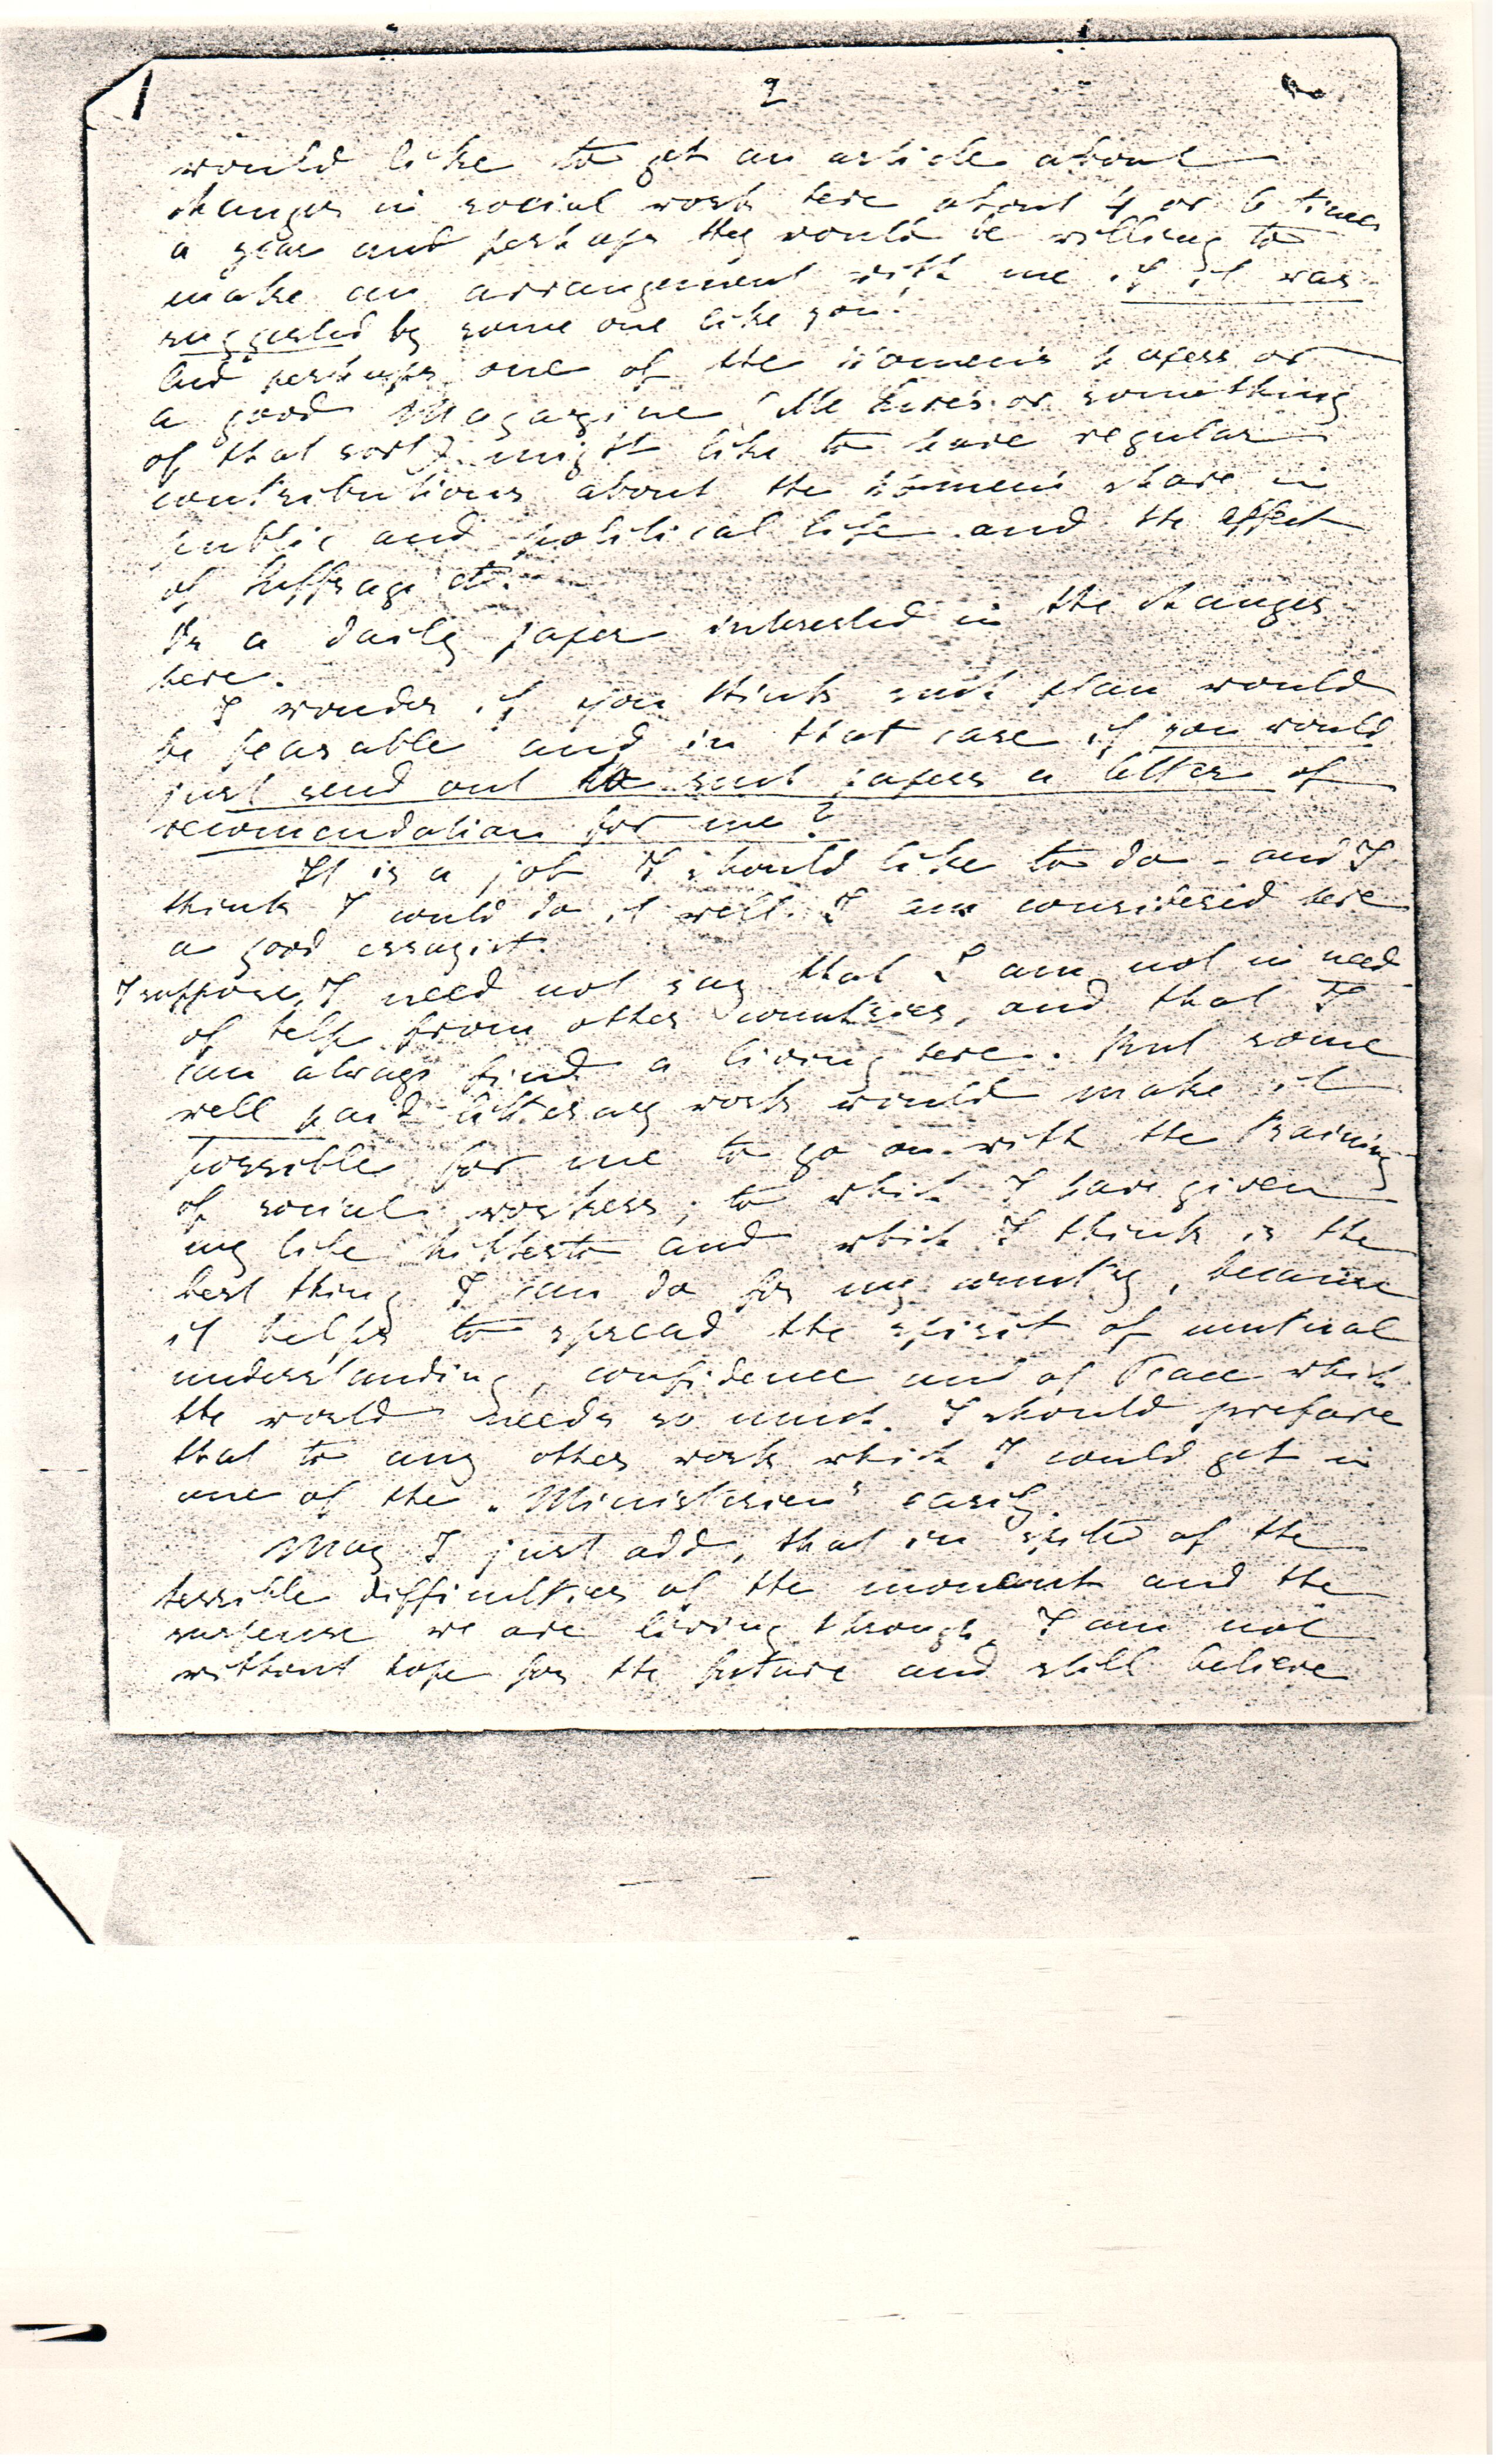 2
would like to get an article about
changes in social work here about 4 or 6 times
a year and perhaps they would be willing to
make an arrangement with me if it was
suggested by some one like you!
And perhaps one of the women's papers or
a good Magazine (Mc Clures or something
of that sort) might like to have regular
contributions about the womens share in
public and political life and the effect
of suffrage etc.
Or a daily paper interested in the changes
here.
I wonder if you think such plan would
be feasable and in that case if you would
just send out to such papers a letter of
recomendation for me?
It is a job I should like to do - and I
think I could do it well. I am considered here
a good essayist.
I suppose, I need not say that I am not in need
of help from other countries, and that I
can always find a living here. But some
well paid litterary work would make it
possible for me to go on with the training
of social workers, to which I have given
my life hitherto and which I think is the
best thing I can do for my country, because
it helps to spread the spirit of mutual
understanding, confidence and of Peace which
the world needs so much. I should prefare
that to any other work which I could get in
one of the "Ministerien" easily.
May I just add, that in spite of the
terrible difficulties of the moment and the
suspense we are living through, I am not
without hope for the future and still believe